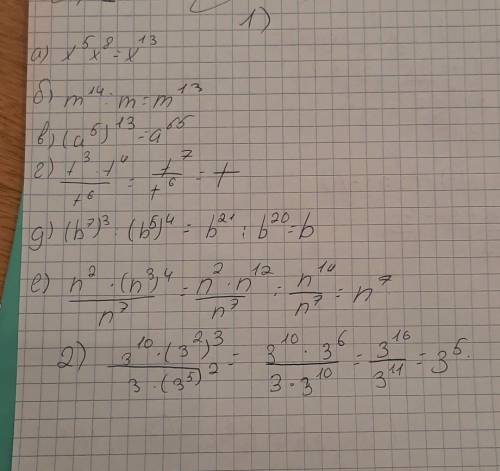 1)
а) x⁵x⁸=x¹³
б) m¹⁴ : m = m¹³
в) (a⁵)¹³ = a⁶⁵
г) (t³ · t⁴)/t⁶ = t⁷/t⁶ = t
д) (b⁷)³ : (b⁵)⁴ = b²¹ : b²⁰ = b
е) (n² · (n³)⁴)/n⁷ = (n² · n¹²)/n⁷ = n¹⁴/n⁷ = n⁷
2) (3¹⁰ · (3²)³)/(3 · (3⁵)²) = (3¹⁰ · 3⁶)/(3 · 3¹⁰) = 3¹⁶/3¹¹ = 3⁵.